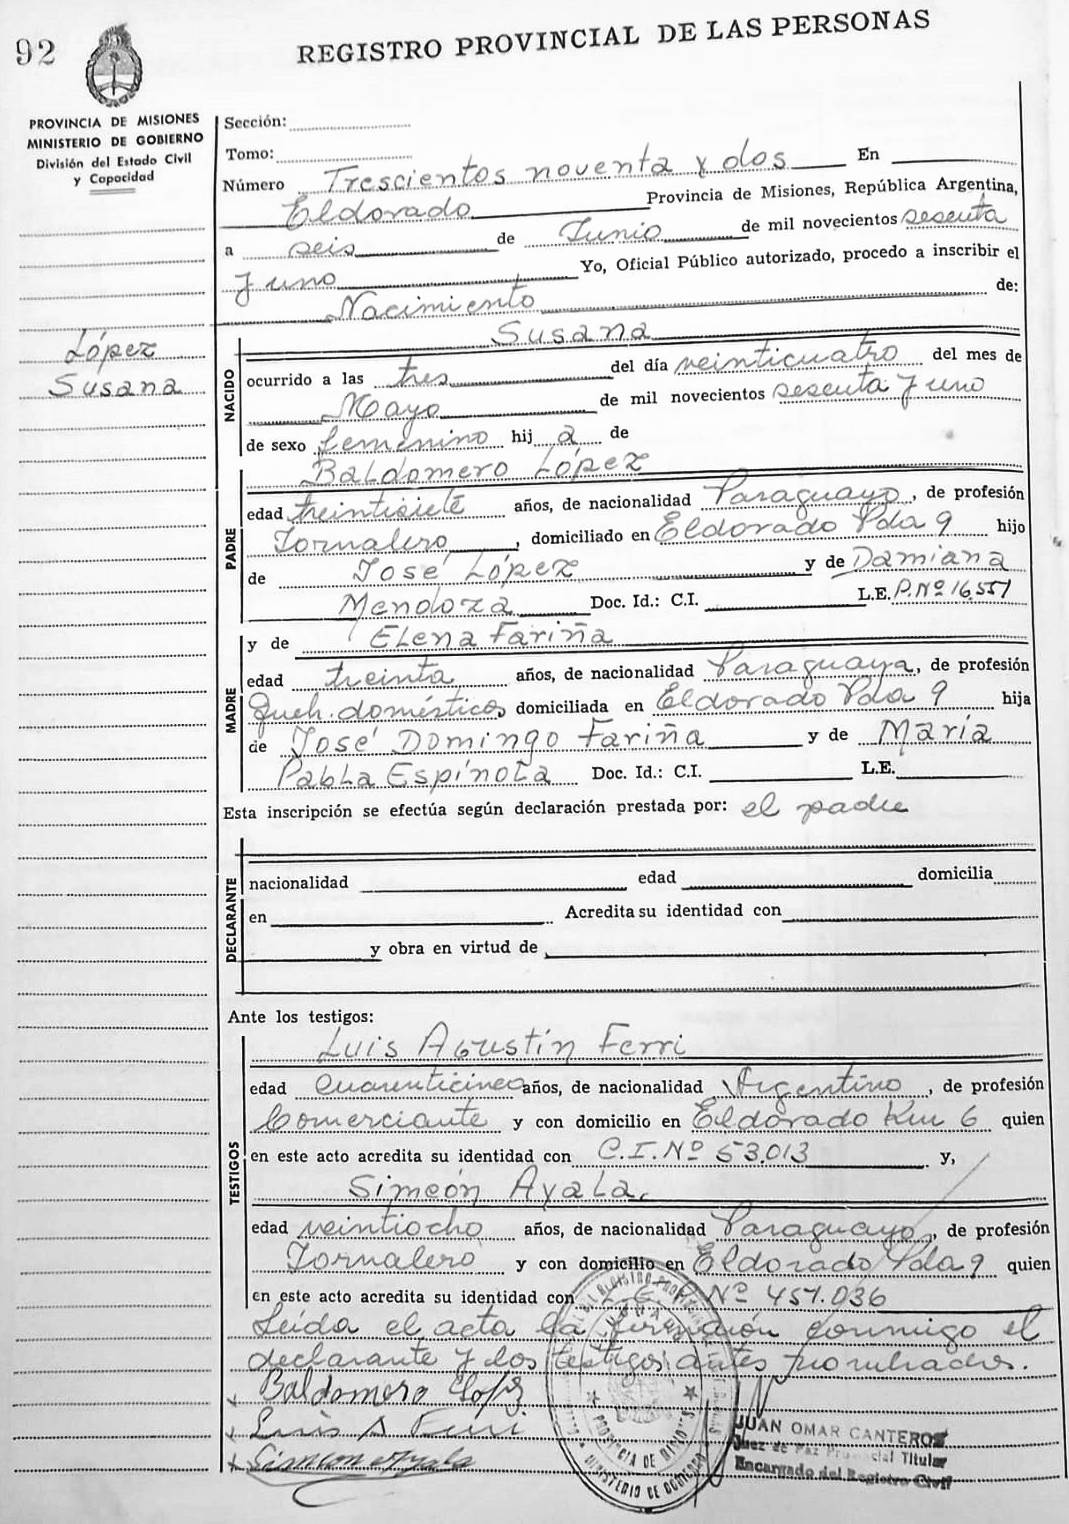 92
REGISTRO PROVINCIAL DE LAS PERSONAS
PROVINCIA DE MISIONES
MINISTERIO DE GOBIERNO
División del Estado Civil
y Capacidad
López
Susana
Sección:
Tomo:
Número Trescientos noventa y dos En
Eldorado Provincia de Misiones, República Argentina,
a seis de Junio de mil novecientos sesenta
y uno Yo, Oficial Público autorizado, procedo a inscribir el
Nacimiento de:
Susana
NACIDO
ocurrido a las tres del día veinticuatro del mes de
Mayo de mil novecientos sesenta y uno
de sexo femenino hij a de
Baldomero López
PADRE
edad treintisiete años, de nacionalidad Paraguayo, de profesión
Jornalero, domiciliado en Eldorado Pda 9 hijo
de José López y de Damiana
Mendoza Doc. Id.: C.I. L.E. P.Nº 16.551
y de Elena Fariña
MADRE
edad treinta años, de nacionalidad Paraguaya, de profesión
Queh. domésticos domiciliada en Eldorado Pda 9 hija
de José Domingo Fariña y de María
Pabla Espínola Doc. Id.: C.I. L.E.
Esta inscripción se efectúa según declaración prestada por: el padre
DECLARANTE
nacionalidad edad domicilia
en Acredita su identidad con
y obra en virtud de
Ante los testigos:
Luis Agustín Ferri
TESTIGOS
edad cuarenticinco años, de nacionalidad Argentino, de profesión
Comerciante y con domicilio en Eldorado Km 6 quien
en este acto acredita su identidad con C.I. Nº 53.013 y,
Simeón Ayala.
edad veintiocho años, de nacionalidad Paraguayo, de profesión
Jornalero y con domicilio en Eldorado Pda 9 quien
en este acto acredita su identidad con Nº 457.036
Leída el acta la firman conmigo el
declarante y los testigos antes nombrados.
Baldomero Lopz
Luis A Ferri
Simeon Ayala
PROVINCIA DE MISIONES
MINISTERIO DE GOBIERNO
JUAN OMAR CANTEROS
Juez de Paz Provincial Titular
Encargado del Registro Civil